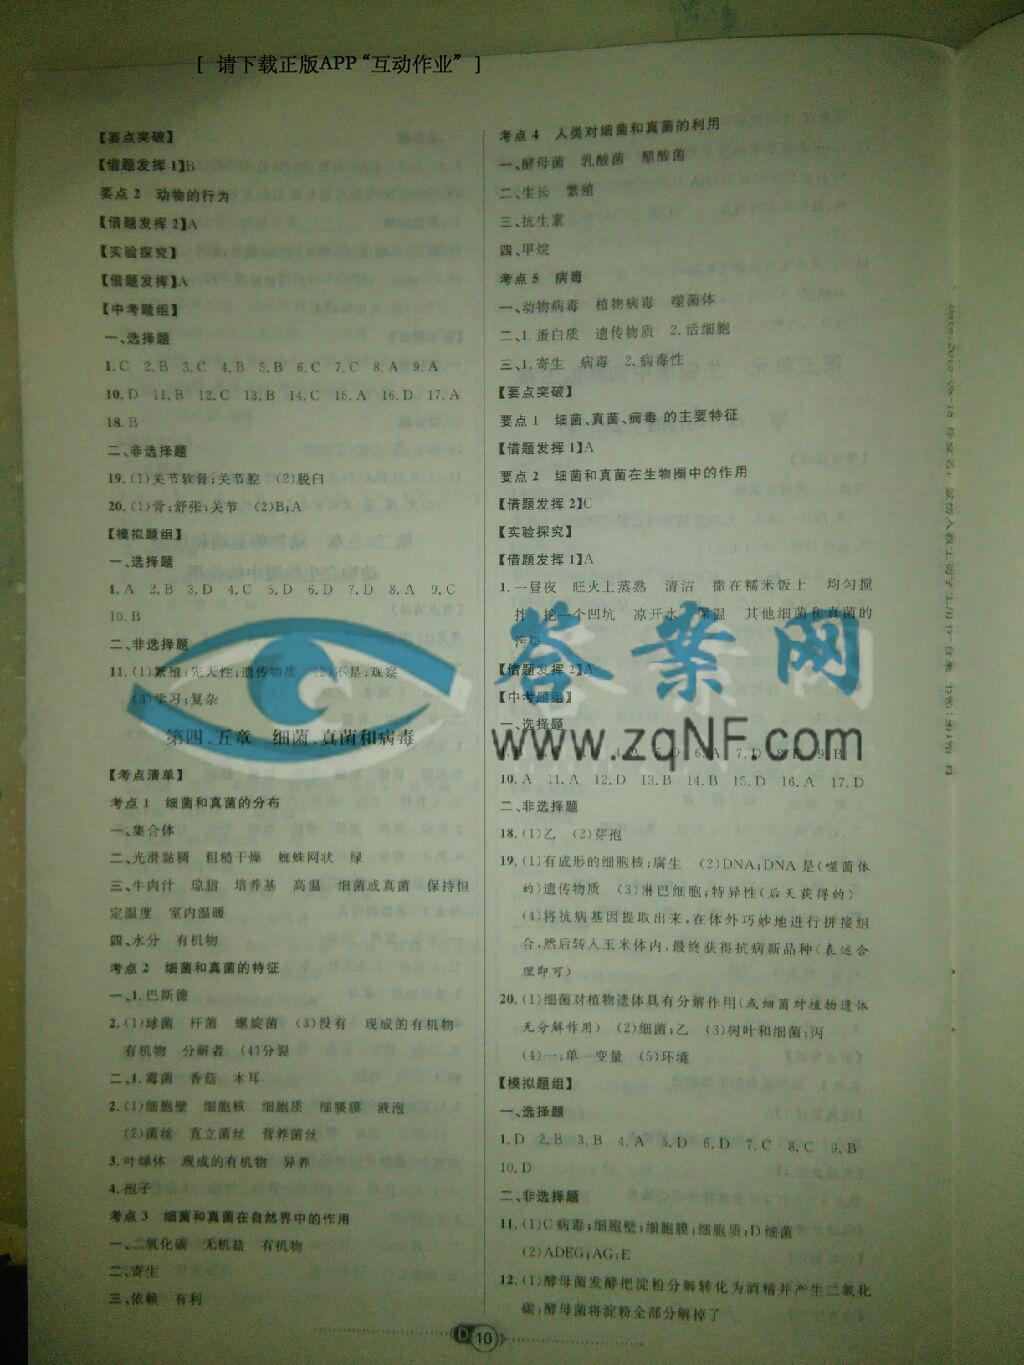 [ 请下载正版APP“互动作业” ]
【要点突破】
【借题发挥1】B
要点2 动物的行为
【借题发挥2】A
【实验探究】
【借题发挥】A
【中考题组】
一、选择题
1.C 2.B 3.C 4.B 5.B 6.C 7.C 8.A 9.A
10.D 11.B 12.C 13.B 14.C 15.A 16.D 17.A
18.B
二、非选择题
19.(1)关节软骨;关节腔 (2)脱臼
20.(1)骨;舒张;关节 (2)B;A
【模拟题组】
一、选择题
1.A 2.B 3.D 4.C 5.D 6.D 7.D 8.A 9.C
10.B
二、非选择题
11.(1)繁殖;先天性;遗传物质 (2)不是;观察
(3)学习;复杂
第四、五章 细菌、真菌和病毒
【考点清单】
考点1 细菌和真菌的分布
一、集合体
二、光滑黏稠 粗糙干燥 蜘蛛网状 绿
三、牛肉汁 琼脂 培养基 高温 细菌或真菌 保持恒
定温度 室内温暖
四、水分 有机物
考点2 细菌和真菌的特征
一、1.巴斯德
2.(1)球菌 杆菌 螺旋菌 (3)没有 现成的有机物
有机物 分解者 (4)分裂
二、1.霉菌 香菇 木耳
2.(1)细胞壁 细胞核 细胞质 细胞膜 液泡
(2)菌丝 直立菌丝 营养菌丝
3.叶绿体 现成的有机物 异养
4.孢子
考点3 细菌和真菌在自然界中的作用
一、二氧化碳 无机盐 有机物
二、寄生
三、依赖 有利
考点4 人类对细菌和真菌的利用
一、酵母菌 乳酸菌 醋酸菌
二、生长 繁殖
三、抗生素
四、甲烷
考点5 病毒
一、动物病毒 植物病毒 噬菌体
二、1.蛋白质 遗传物质 2.活细胞
三、1.寄生 病毒 2.病毒性
【要点突破】
要点1 细菌、真菌、病毒的主要特征
【借题发挥1】A
要点2 细菌和真菌在生物圈中的作用
【借题发挥2】C
【实验探究】
【借题发挥1】A
1.一昼夜 旺火上蒸熟 清洁 撒在糯米饭上 均匀搅
拌 挖一个凹坑 凉开水 保温 其他细菌和真菌的
污染
【借题发挥2】A
【中考题组】
一、选择题
9.B
10.A 11.A 12.D 13.B 14.B 15.D 16.A 17.D
二、非选择题
18.(1)乙 (2)芽孢
19.(1)有成形的细胞核;腐生 (2)DNA;DNA是(噬菌体
的)遗传物质 (3)淋巴细胞;特异性(后天获得的)
(4)将抗病基因提取出来,在体外巧妙地进行拼接组
合,然后转入玉米体内,最终获得抗病新品种(表述合
理即可)
20.(1)细菌对植物遗体具有分解作用(或细菌对植物遗体
无分解作用) (2)细菌;乙 (3)树叶和细菌;丙
(4)一;单一变量 (5)环境
【模拟题组】
一、选择题
1.D 2.B 3.B 4.A 5.D 6.D 7.C 8.C 9.B
10.D
二、非选择题
11.(1)C病毒;细胞壁;细胞膜;细胞质;D细菌
(2)ADEG;AG;E
12.(1)酵母菌发酵把淀粉分解转化为酒精并产生二氧化
碳;酵母菌将淀粉全部分解掉了
D 10
答案网
www.zqNF.com